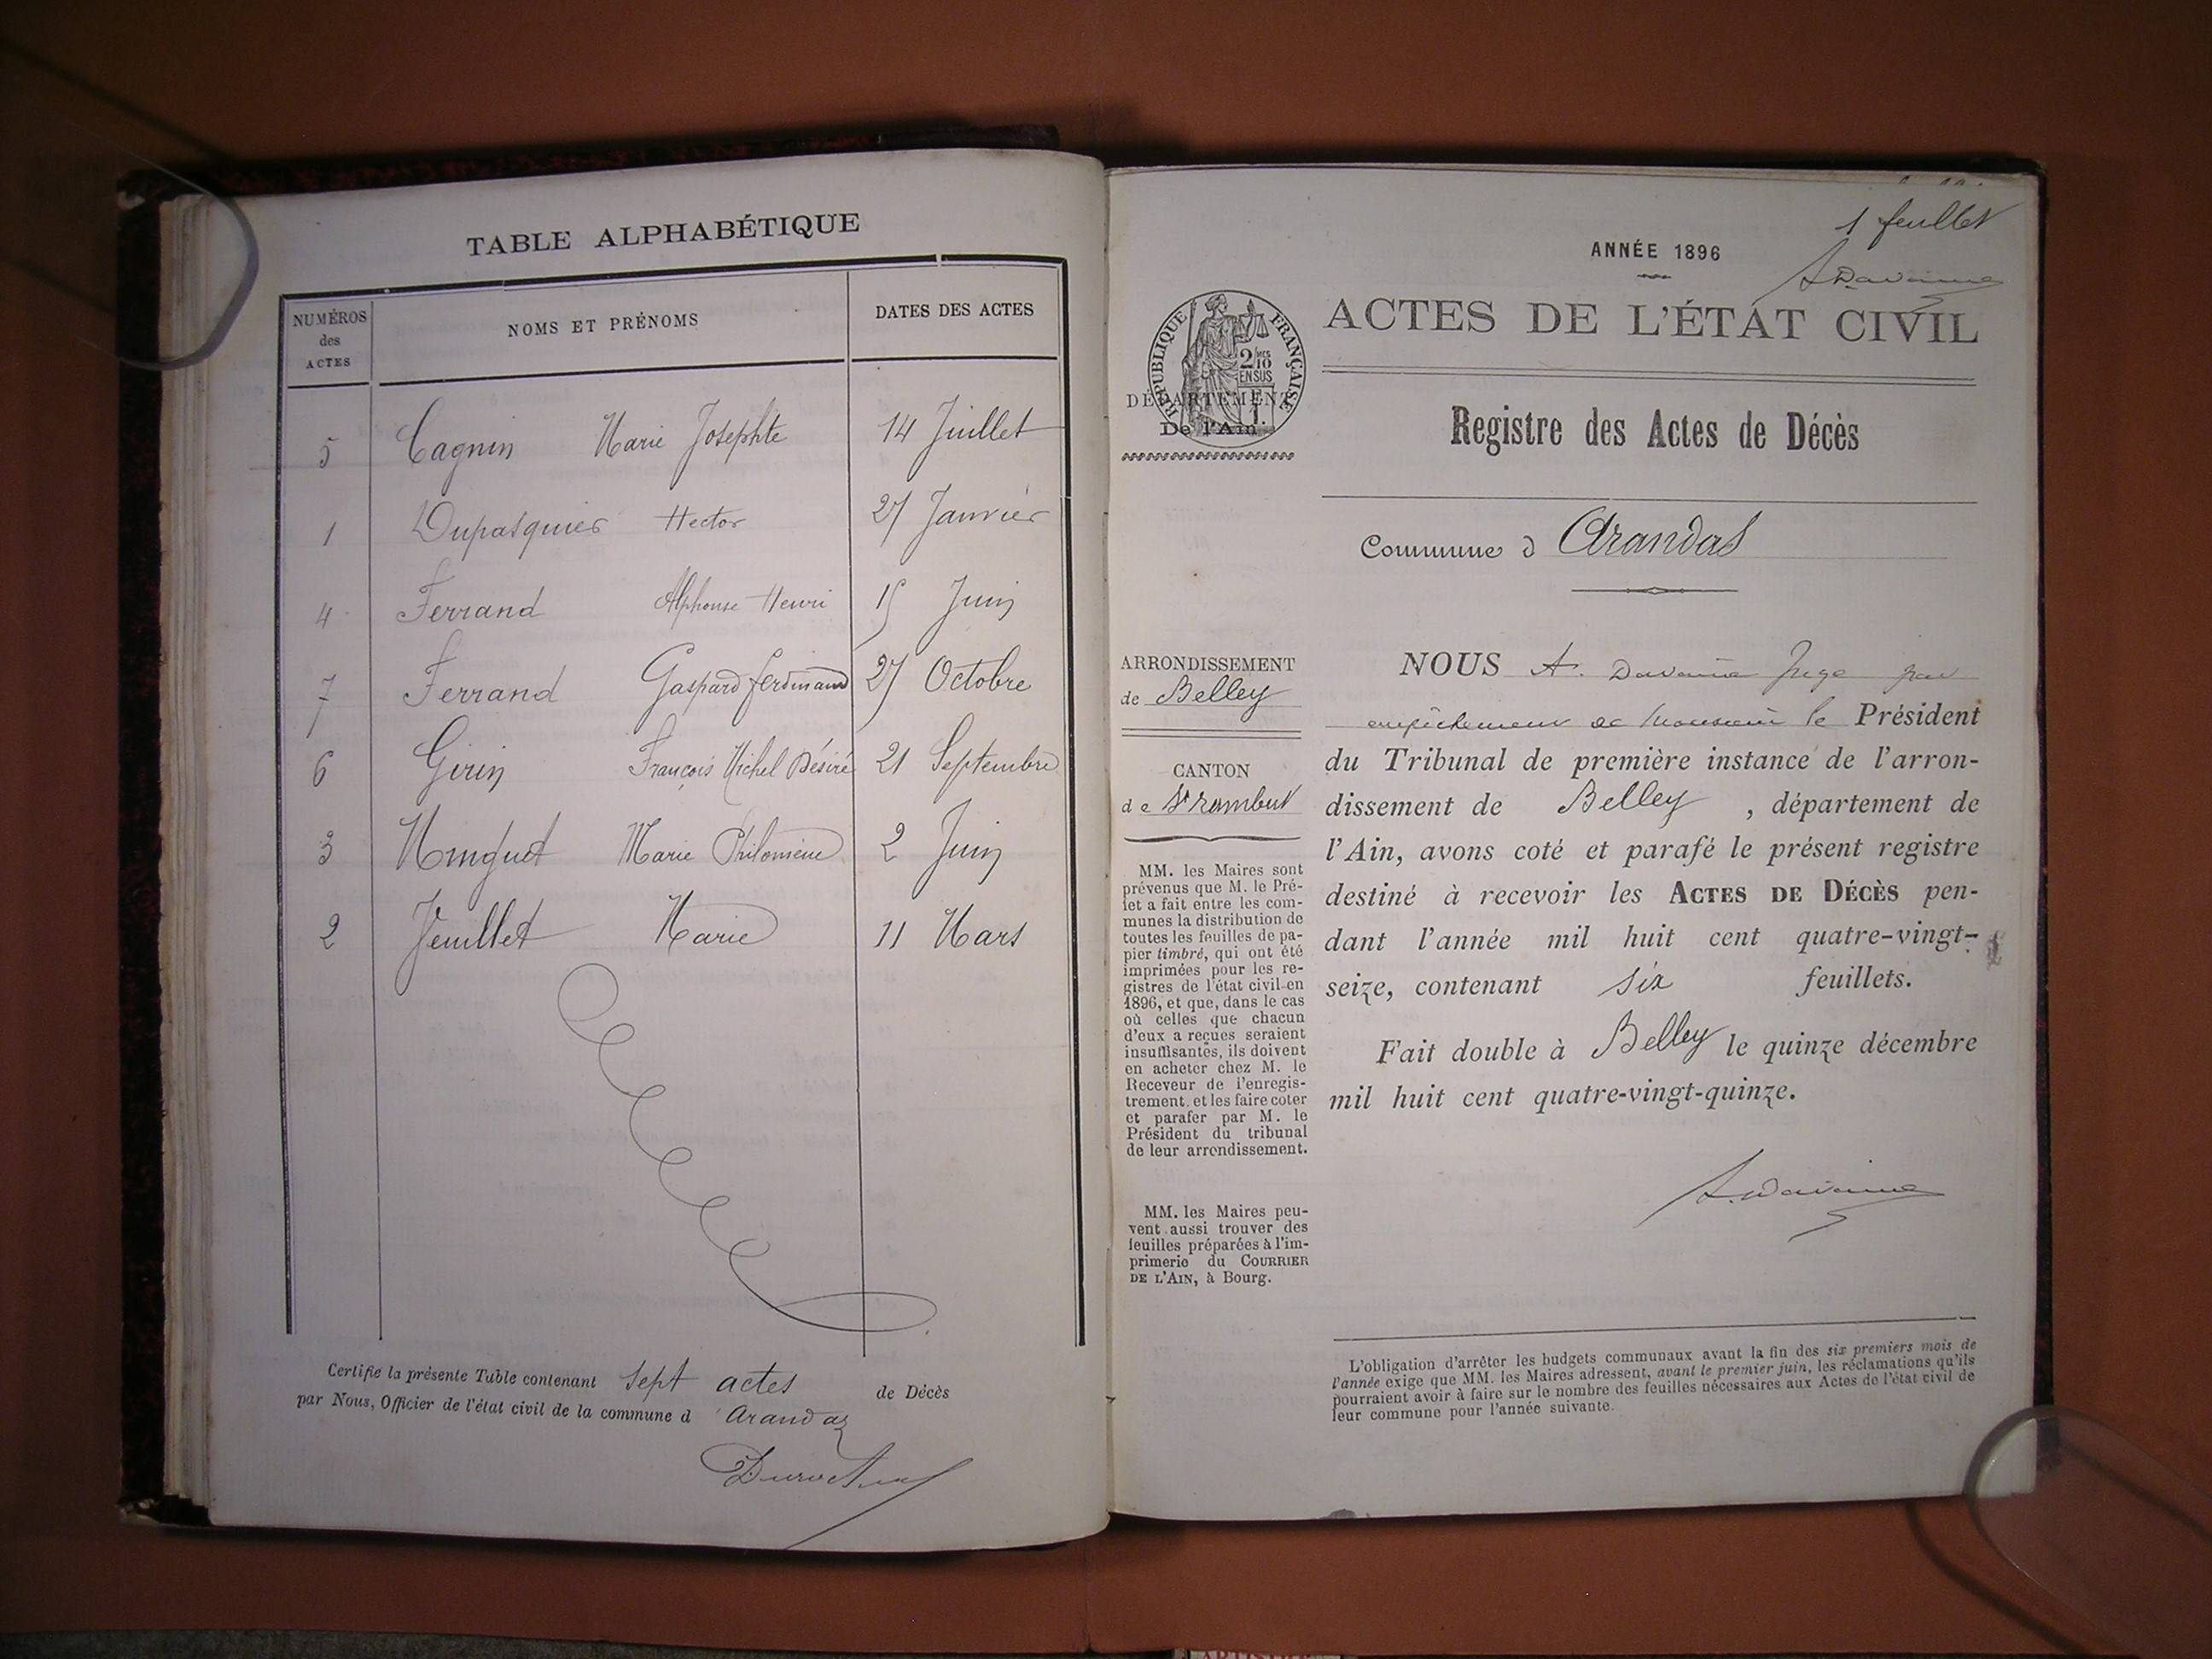 TABLE ALPHABÉTIQUE
NUMÉROS des ACTES
NOMS ET PRÉNOMS
DATES DES ACTES
5 Cagnin Marie Josephte 14 Juillet
1 Dupasquier Hector 27 Janvier
4 Ferrand Alphonse Henri 15 Juin
7 Ferrand Gaspard ferdinand 27 Octobre
6 Girin François Michel Désiré 21 Septembre
3 Marie Philomène 2 Juin
2 Veuillet Marie 11 Mars
Certifie la présente Table contenant Sept actes de Décès
par Nous, Officier de l'état civil de la commune d Arandaz
1 feuillet
ANNÉE 1896
ACTES DE L'ÉTAT CIVIL
RÉPUBLIQUE FRANÇAISE
2/10
EN SUS
DÉPARTEMENT
De l'Ain.
Registre des Actes de Décès
Commune d Arandas
ARRONDISSEMENT
de Belley
CANTON
de St rambert
MM. les Maires sont
prévenus que M. le Pré-
fet a fait entre les com-
munes la distribution de
toutes les feuilles de pa-
pier timbré, qui ont été
imprimées pour les re-
gistres de l'état civil en
1896, et que, dans le cas
où celles que chacun
d'eux a reçues seraient
insuffisantes, ils doivent
en acheter chez M. le
Receveur de l'enregis-
trement. et les faire coter
et parafer par M. le
Président du tribunal
de leur arrondissement.
MM. les Maires peu-
vent aussi trouver des
feuilles préparées à l'im-
primerie du COURRIER
DE L'AIN, à Bourg.
NOUS A. Davaine Juge par
empêchement de Monsieur le Président
du Tribunal de première instance de l'arron-
dissement de Belley, département de
l'Ain, avons coté et parafé le présent registre
destiné à recevoir les ACTES DE DÉCÈS pen-
dant l'année mil huit cent quatre-vingt-
seize, contenant six feuillets.
Fait double à Belley le quinze décembre
mil huit cent quatre-vingt-quinze.
A. Davaine
L'obligation d'arrêter les budgets communaux avant la fin des six premiers mois de
l'année exige que MM. les Maires adressent, avant le premier juin, les réclamations qu'ils
pourraient avoir à faire sur le nombre des feuilles nécessaires aux Actes de l'état civil de
leur commune pour l'année suivante.